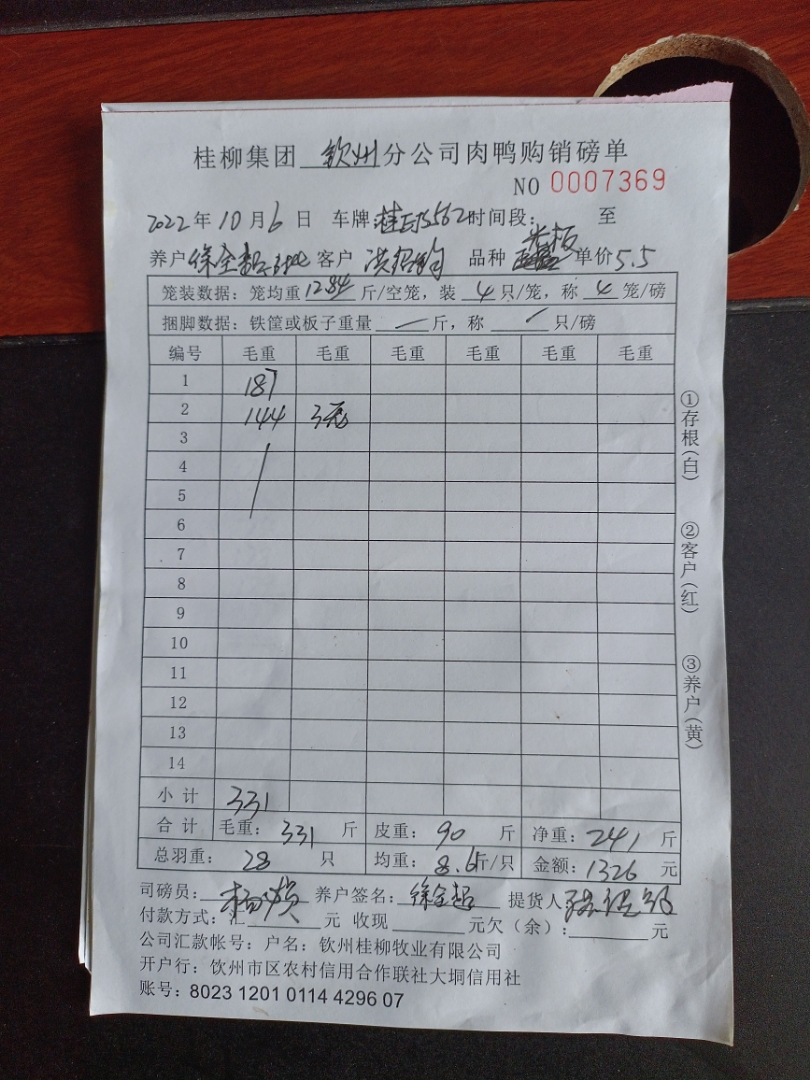 桂柳集团 钦州 分公司肉鸭购销磅单
NO 0007369
2022 年 10 月 6 日 车牌 562 时间段： 至
养户 徐全超 客户 洪 品种 单价 5.5
笼装数据：笼均重 12.84 斤/空笼，装 4 只/笼，称 4 笼/磅
捆脚数据：铁筐或板子重量 — 斤，称 / 只/磅
编号 毛重 毛重 毛重 毛重 毛重 毛重
1 187
2 144 3笼
3
4
5
6
7
8
9
10
11
12
13
14
小计 331
合计 毛重： 331 斤 皮重： 90 斤 净重： 241 斤
总羽重： 28 只 均重： 8.6 斤/只 金额： 1326 元
司磅员： 杨 养户签名： 徐全超 提货人
付款方式：汇 元 收现 元欠（余）： 元
公司汇款帐号：户名：钦州桂柳牧业有限公司
开户行：钦州市区农村信用合作联社大垌信用社
账号：8023 1201 0114 4296 07
①存根（白） ②客户（红） ③养户（黄）